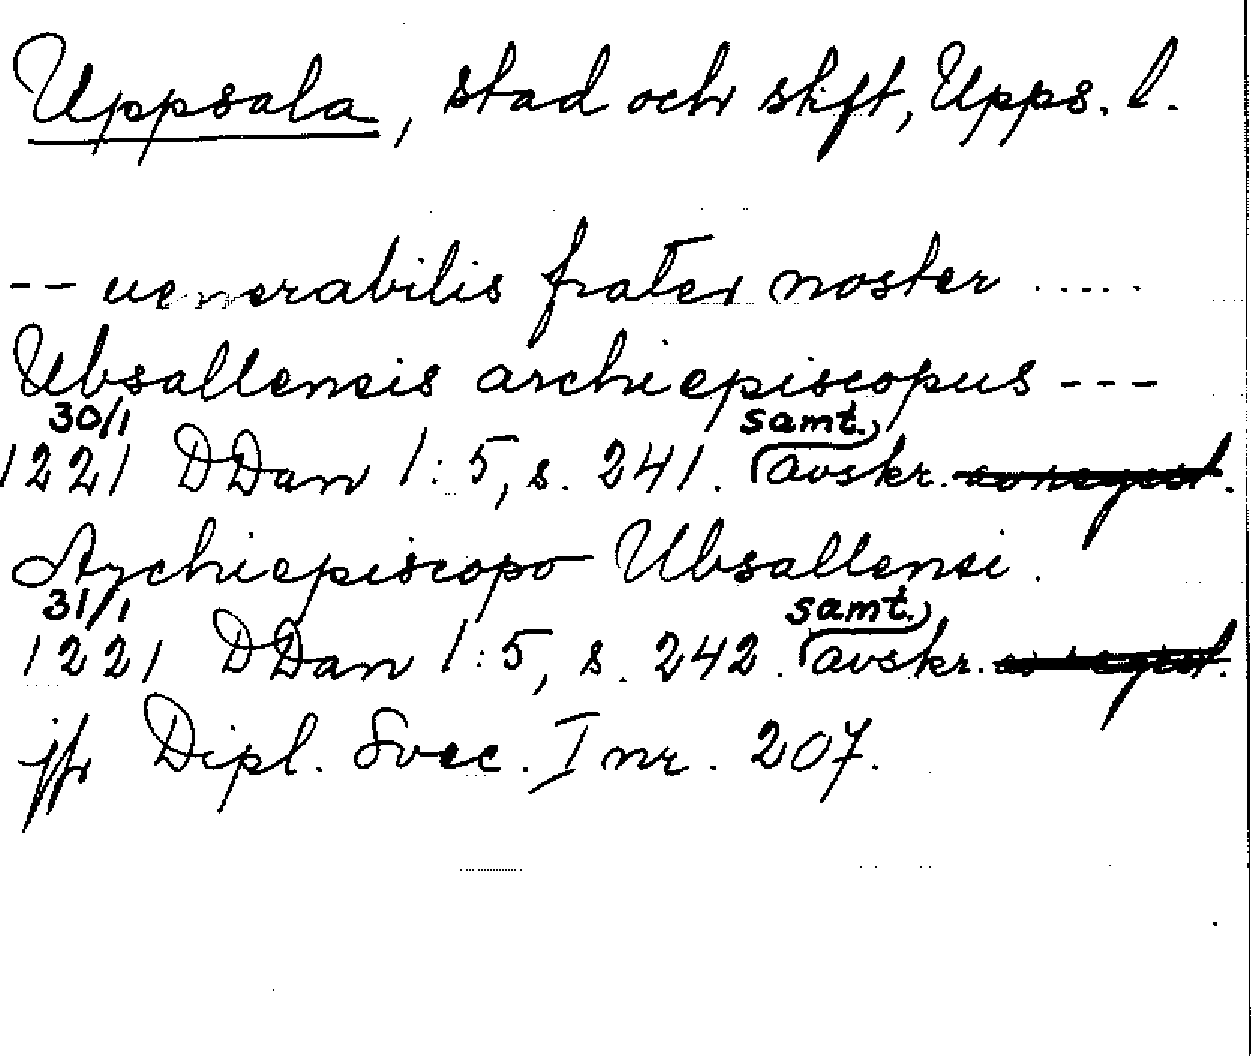 Uppsala, stad och stift, Upps. l.
-- uenerabilis frater noster .....
Ubsallensis archiepiscopus ---
30/1 samt.
1221 DDan 1:5, s. 241. avskr.
Archiepiscopo Ubsallensi.
31/1 samt.
1221 DDan 1:5, s. 242. avskr.
jfr Dipl. Svec. I nr. 207.